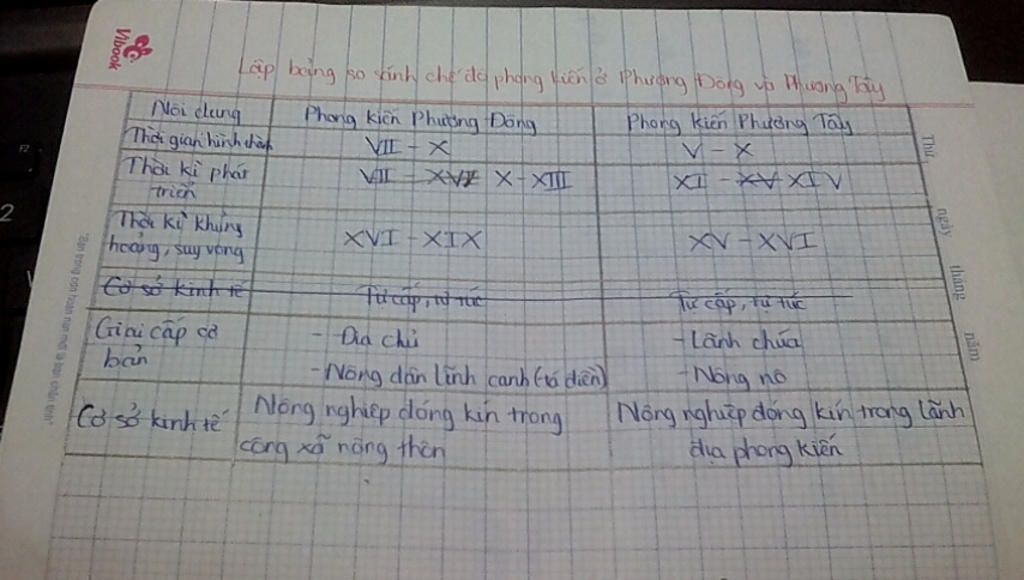 Vibook
Lập bảng so sánh chế độ phong kiến ở Phương Đông và Phương Tây
Nội dung Phong kiến Phương Đông Phong kiến Phương Tây
Thời gian hình thành VII - X V - X
Thời kì phát VII - XVI X - XIII XI - XV XIV
triển
Thời kỳ khủng
hoảng, suy vong XVI - XIX XV - XVI
Cơ sở kinh tế Tự cấp, tự túc Tự cấp, tự túc
Giai cấp cơ - Địa chủ - Lãnh chúa
bản - Nông dân lĩnh canh (tá điền) - Nông nô
Cơ sở kinh tế Nông nghiệp đóng kín trong Nông nghiệp đóng kín trong lãnh
công xã nông thôn địa phong kiến
Thứ ngày tháng năm
F2
2